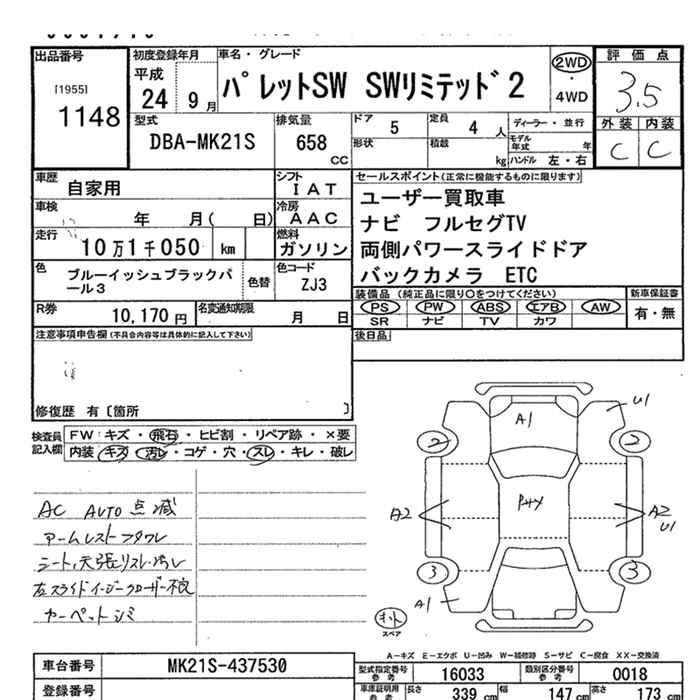 出品番号 初度登録年月 車名・グレード 評価点
[1955] 平成 パレットSW SWリミテッド2 2WD・4WD 3.5
1148 24 9月 外装 内装
型式 排気量 ドア 5 定員 4人 ディーラー・並行 C C
DBA-MK21S 658 CC 形状 積載 kg モデル年式 年 ハンドル 左・右
車歴 自家用 シフト IAT セールスポイント(正常に機能するものに限ります)
車検 年 月( 日) 冷房 AAC ユーザー買取車
ナビ フルセグTV
走行 10万1千050 km 燃料 ガソリン 両側パワースライドドア
バックカメラ ETC
色 ブルーイッシュブラックパール3 色替 色コード ZJ3
装備品(純正品に限り○をつけてください) 新車保証書
PS PW ABS エアB AW 有・無
SR ナビ TV カワ
R券 10,170円 名変通知期限 月 日
後日品
注意事項申告欄(不具合内容等は具体的に記入して下さい)
修復歴 有〔箇所 〕
検査員記入欄 FW:キズ・飛石・ヒビ割・リペア跡・×要
内装 キズ・汚レ・コゲ・穴・スレ・キレ・破レ
AC AUTO 点滅
アームレストフタワレ
シート、天張リスレ・汚レ
左スライドイージークローザー不良
カーペットシミ
A1 U1
2 2
A2 A2
U1
3 3
A1
スペア
A-キズ E-エクボ U-凹み W-補修跡 S-サビ C-腐食 XX-交換済
車台番号 MK21S-437530 型式指定番号 参考 16033 類別区分番号 参考 0018
登録番号 車庫証明用 参考 長さ 339 cm 幅 147 cm 高さ 173 cm